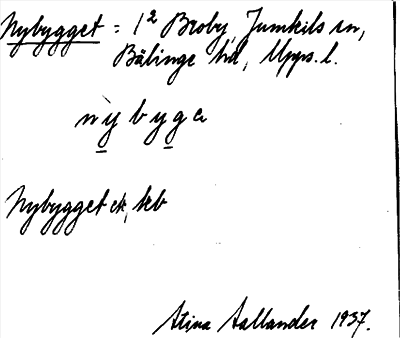 Nybygget = 1² Broby, Jumkils sn,
Bälinge hd, Upps. l.
nỳbyga
Nybygget ek, hb
Stina Aallander 1937.